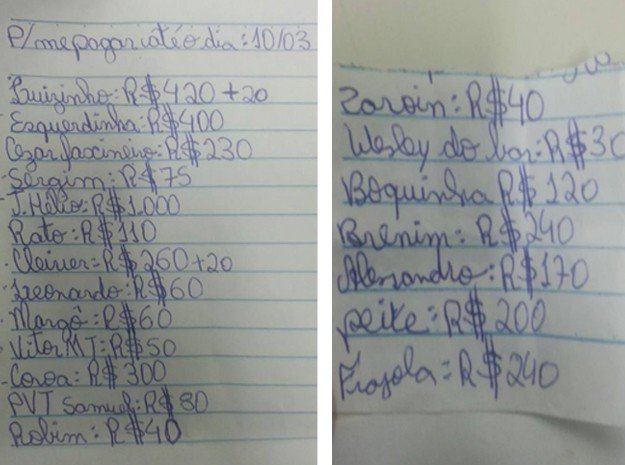 P/ me pagar até o dia: 10/03
Luizinho: R$420 +20
Esquerdinha: R$400
Cezar fascineiro: R$230
Sérgim: R$75
J. Hélio: R$1.000
Rato: R$110
Cleiver: R$260+20
Leonardo: R$60
Margô: R$60
Vitor MJ: R$50
Coroa: R$300
PVT Samuel: R$80
Robim: R$40
Zaroin: R$40
Wesley do bar: R$30
Boquinha R$120
Brenim: R$240
Alexandro: R$170
peixe: R$200
Frajola: R$240